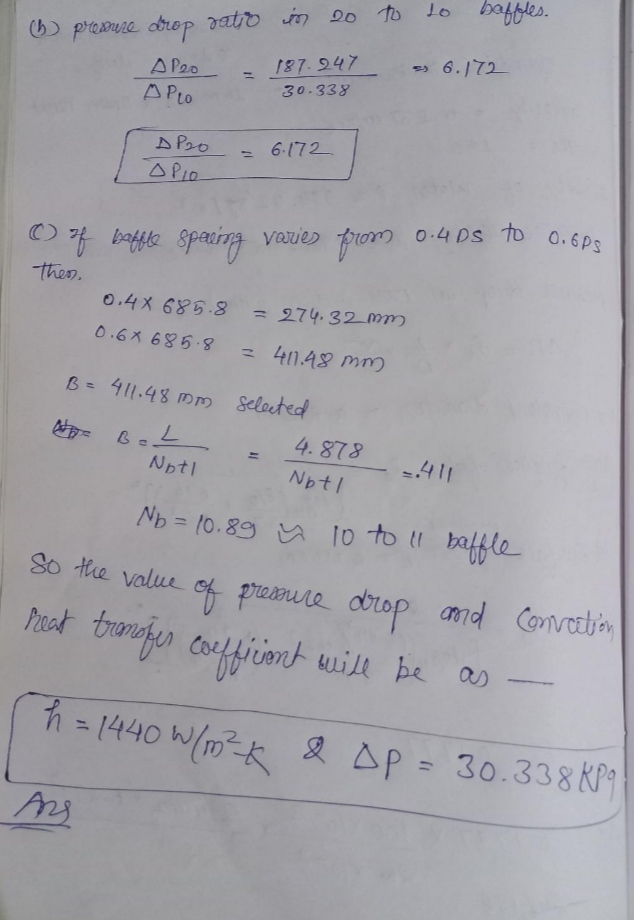 (b) pressure drop ratio in 20 to 10 baffles.
ΔP20 / ΔP10 = 187.247 / 30.338 ⇒ 6.172
ΔP20 / ΔP10 = 6.172
(C) If baffle spacing varies from 0.4 DS to 0.6 DS
then.
0.4 × 685.8 = 274.32 mm
0.6 × 685.8 = 411.48 mm
B = 411.48 mm selected
B = L / Nb+1 = 4.878 / Nb+1 = .411
Nb = 10.89 ≈ 10 to 11 baffle
So the value of pressure drop and Convection
heat transfer coefficient will be as —
h = 1440 W/m²-K & ΔP = 30.338 KPa
Ans